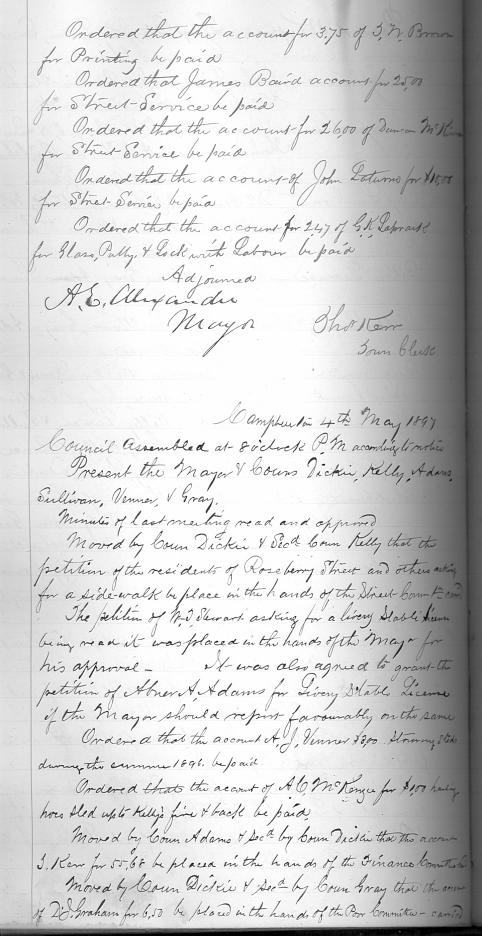 Ordered that the account for 3.75 of S. W. Brown
for Printing be paid
Ordered that James Baird account for 25.00
for Street Service be paid
Ordered that the account for 26.00 of Duncan
for Street Service be paid
Ordered that the account of John for
for Street Service be paid
Ordered that the account for 2.47 of G.K.
for Glass, Putty, & Lock with Labour be paid
Adjourned
A. E. Alexander
Mayor
Thos Kerr
Town Clerk
Campbellton 4th May 1897
Council Assembled at 8 o'clock P.M according to notice
Present the Mayor & Couns Dickie, Kelly, Adams,
Sullivan, Venner, & Gray.
Minutes of last meeting read and approved
Moved by Coun Dickie & Secd Coun Kelly that the
petition of the residents of Roseberry Street and others asking
for a side-walk be place in the hands of the Street
The petition of Stewart asking for a livery Stable
being read it was placed in the hands of the Mayor for
his approval - It was also agreed to grant the
petition of Abner A Adams for Livery Stable License
if the Mayor should report favourably on the same
Ordered that the account A. J. Venner
during the summer 1896. be paid
Ordered that the account of A. C. McKenzie for
hose sled up to Kelly's fire & back be paid.
Moved by Coun Adams & Secd by Coun Dickie that the account
T. Kerr for 55.68 be placed in the hands of the Finance Committee
Moved by Coun Dickie & Secd by Coun Gray that the
of D. J. Graham for 6.50 be placed in the hands of the Poor Committee - carried